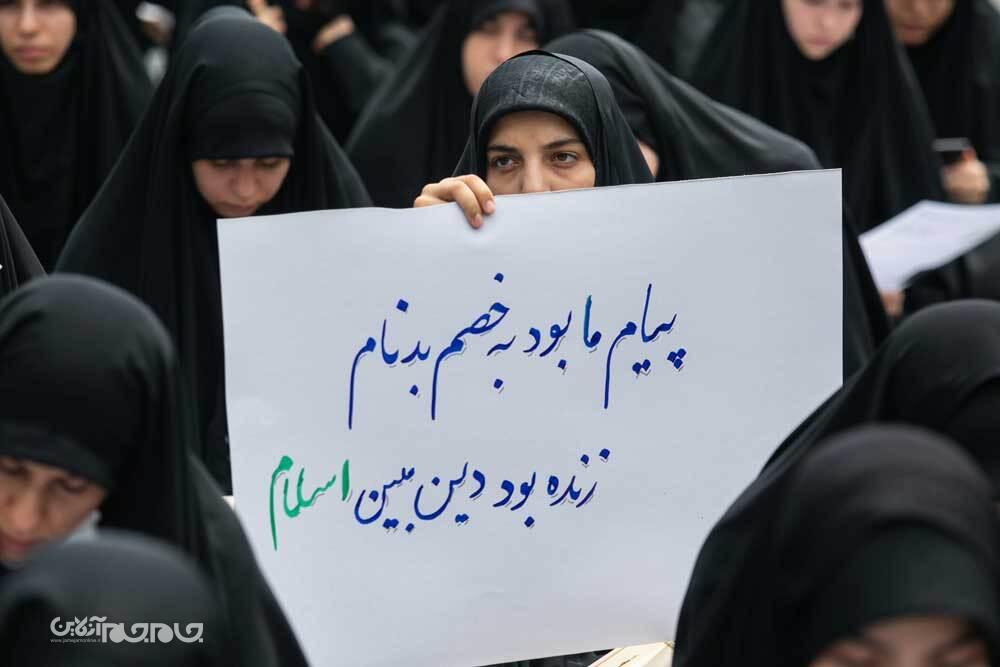 پیام ما بود به خصم بدنام
زنده بود دین مبین اسلام
جام‌جم آنلاین
www.jamejamonline.ir